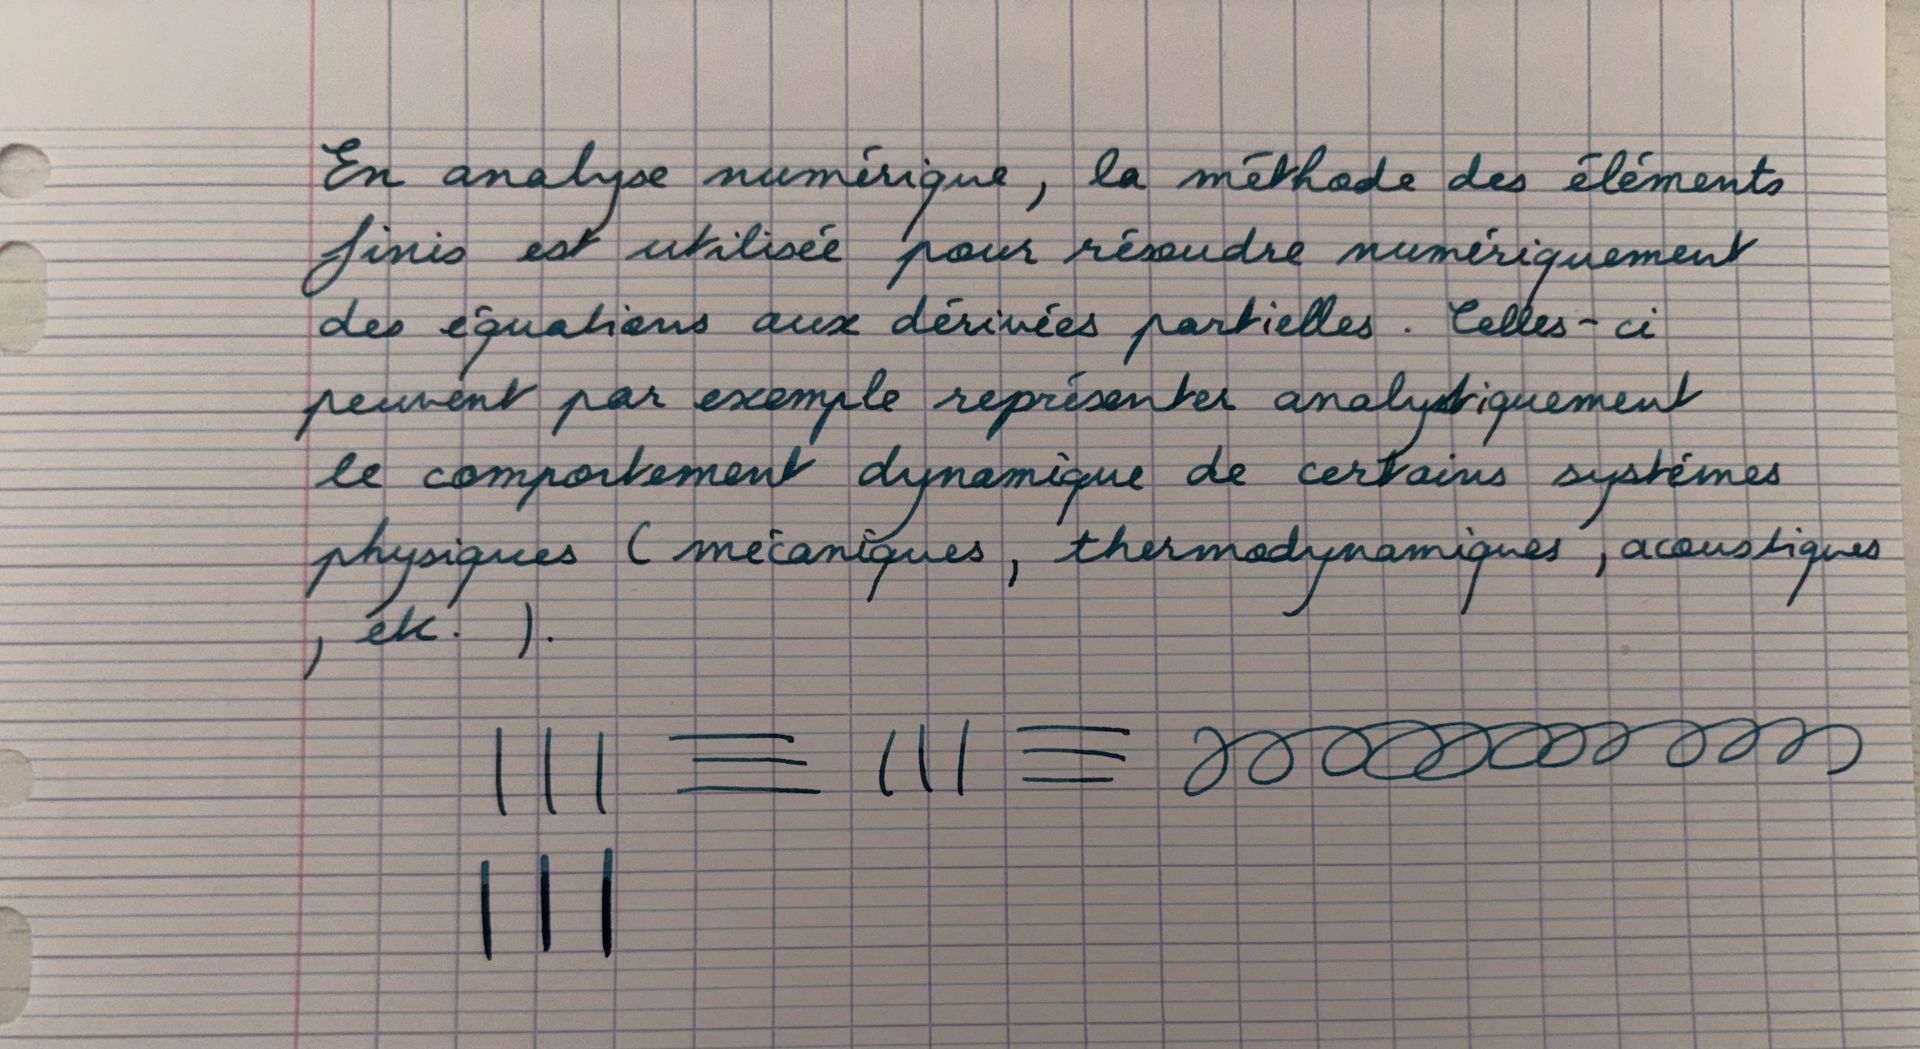 En analyse numérique, la méthode des éléments
finis est utilisée pour résoudre numériquement
des équations aux dérivées partielles. Celles-ci
peuvent par exemple représenter analytiquement
le comportement dynamique de certains systèmes
physiques (mécaniques, thermodynamiques, acoustiques
, etc. ).